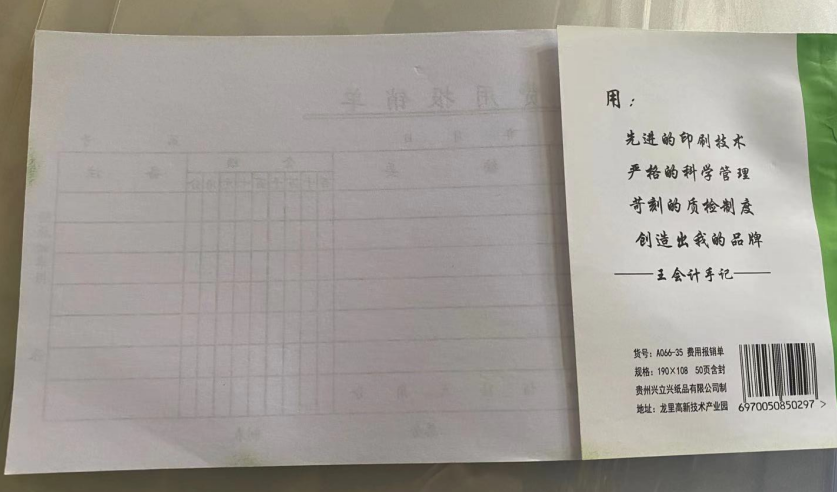 费用报销单
用：
先进的印刷技术
严格的科学管理
苛刻的质检制度
创造出我的品牌
——王会计手记——
货号：A066-35 费用报销单
规格：190×108 50页含封
贵州兴立兴纸品有限公司制
地址：龙里高新技术产业园
6970050850297 >